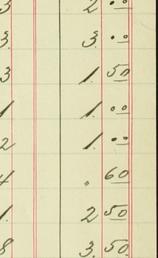 3 2 00
3 3 00
3 1 50
1 1 00
2 1 00
4 . 60
1. 2 50
8 3. 50